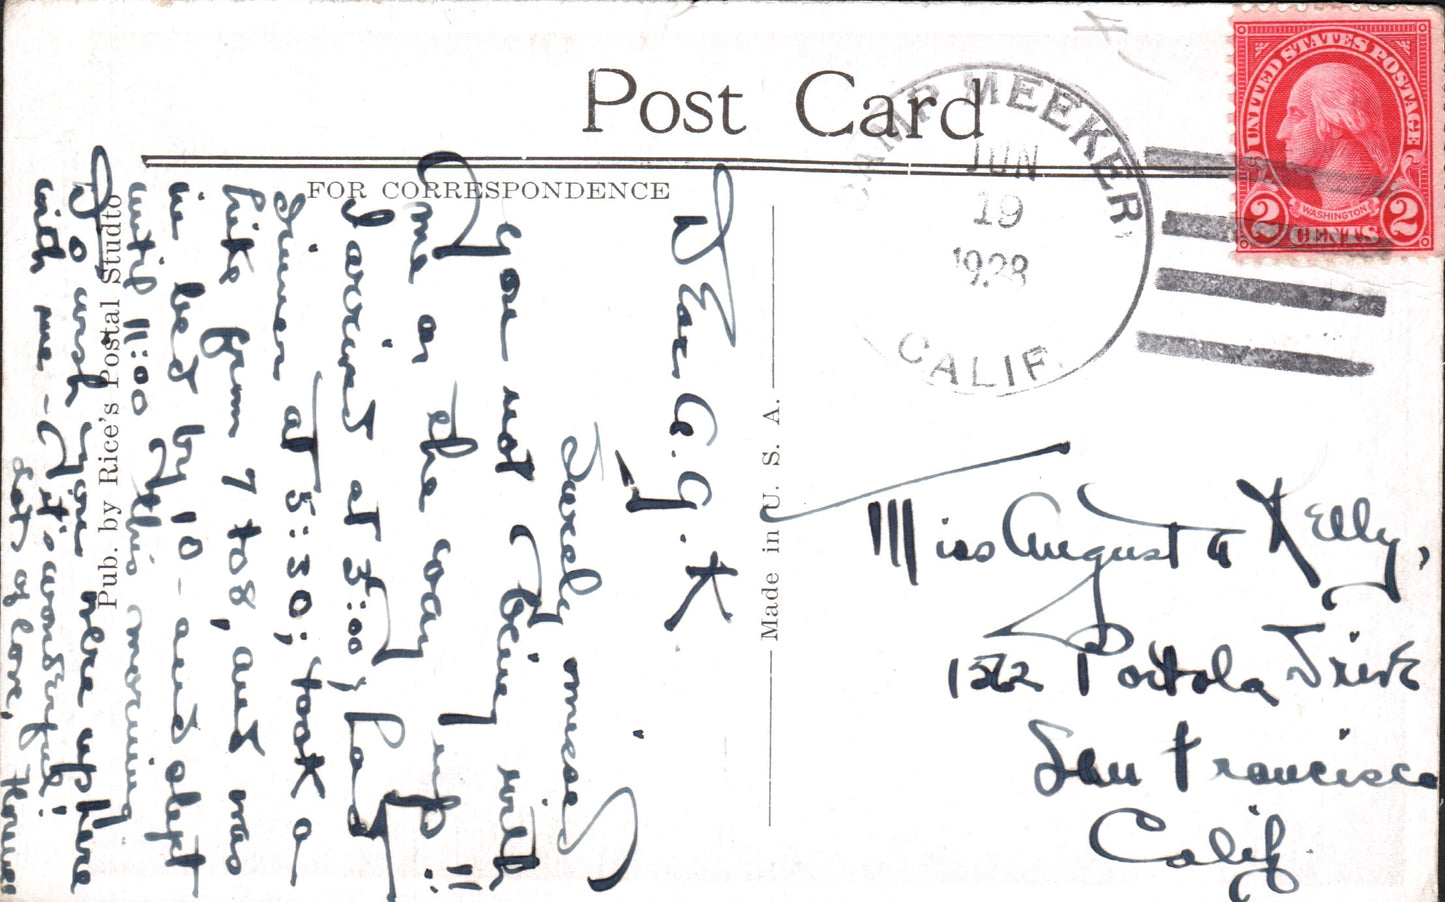 Post Card
FOR CORRESPONDENCE
CAMP MEEKER
JUN
19
1928
CALIF.
UNITED STATES POSTAGE
WASHINGTON
2 CENTS 2
Dear A. G. K
Surely missed
you not being with
me on the way up!!
I arrived at 3:00; had
dinner at 5:30; took a
hike from 7 to 8, and was
in bed by 10 - and slept
until 11:00 this morning
I do wish you were up here
with me - It's wonderful!
Lots of love,
Miss Augusta Kelly,
1562 Portola Drive
San Francisco
Calif.
Made in U. S. A.
Pub. by Rice's Postal Studto